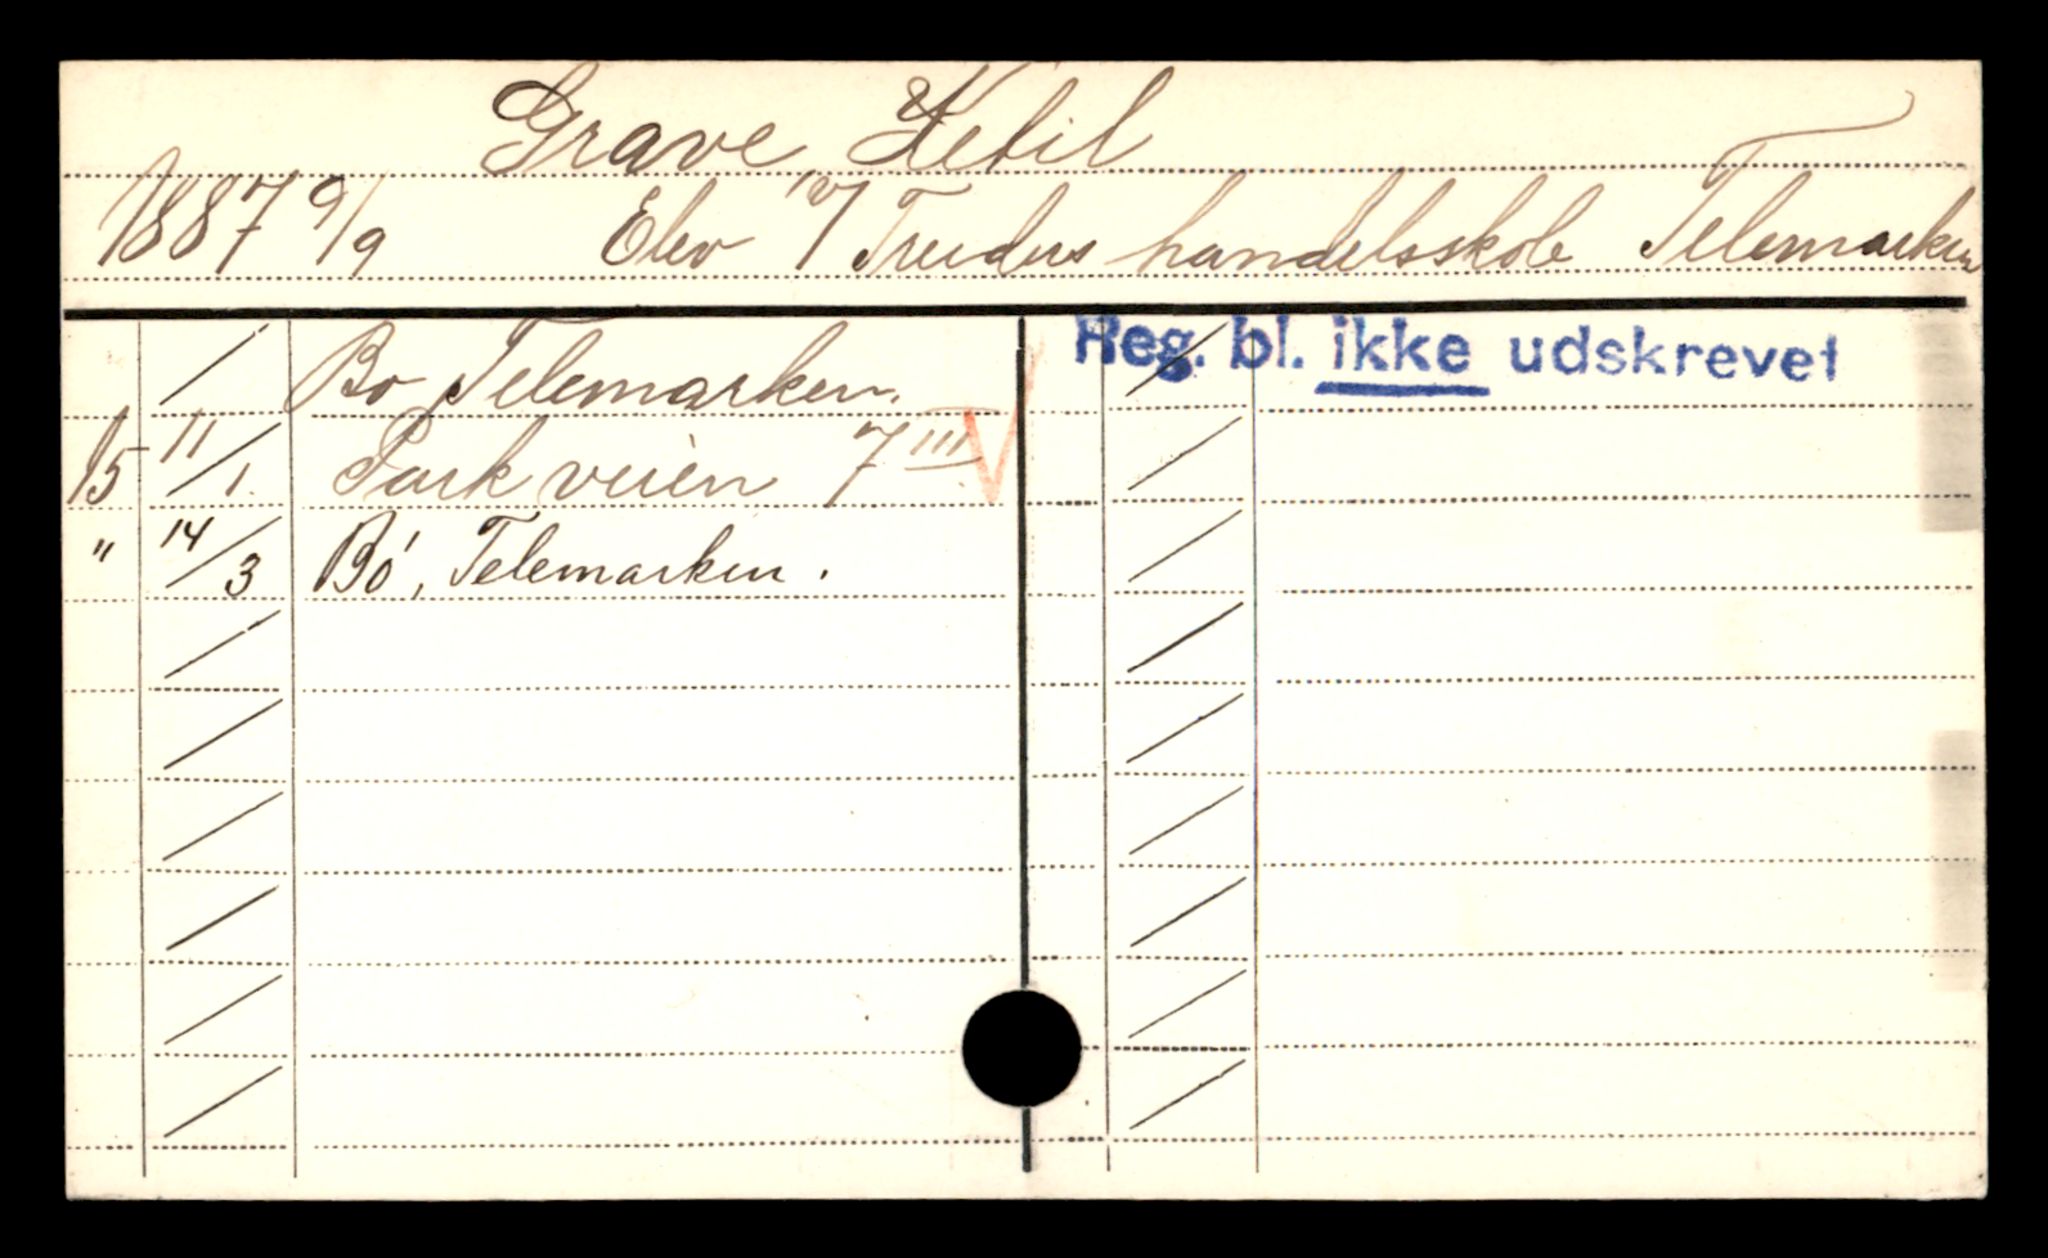 Grave Ketil
1887 9/9 Elev v/ Treiders handelsskole Telemarken
Bo Telemarken.
15 11/1. Parkveien 7 III V
" 14/3 Bó, Telemarken.
Reg. bl. ikke udskrevet